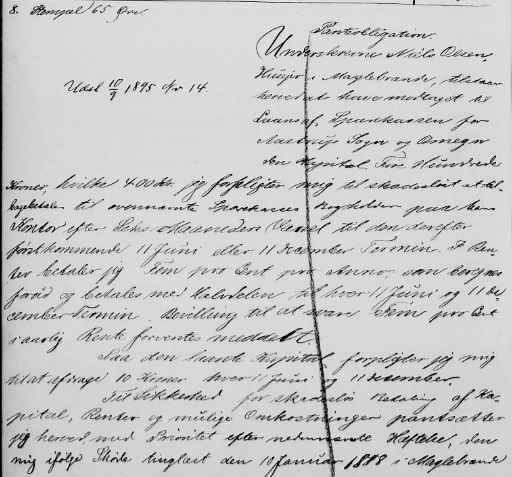 8. Stempel 65 Øre.
Pantobligation.
Underskrevne Niels Olsen,
Husejer i Maglebrænde, tilstaaer
herved at have modtaget til
Udsl 10/9 1895 Nr 14.
Laans af Sparekassen for
Aastrup Sogn og Omegn
den Kapital Fire Hundrede
Kroner, hvilke 400 Kr. jeg forpligter mig til skadesløst at til-
bagebetale til ovennævnte Sparekasses Bogholder paa hans
Kontor efter Seks Maaneders Varsel til den derefter
førstkommende 11 Juni eller 11 December Termin. I Ren-
ter betaler jeg Fem pro Cent pro Anno, som beregnes
forud og betales med Halvdelen til hver 11 Juni og 11 De-
cember Termin. Bevilling til at svare Fem pro Cent
i aarlig Rente forventes meddelt.
Paa den laante Kapital forpligter jeg mig
til at afdrage 10 Kroner hver 11 Juni og 11 December.
Til Sikkerhed for skadesløs Betaling af Ka-
pital, Renter og mulige Omkostninger pantsætter
jeg herved, med Prioritet efter nedennævnte Hæftelse, den
mig ifølge Skøde tinglæst den 10 Januar 1888 i Maglebrænde